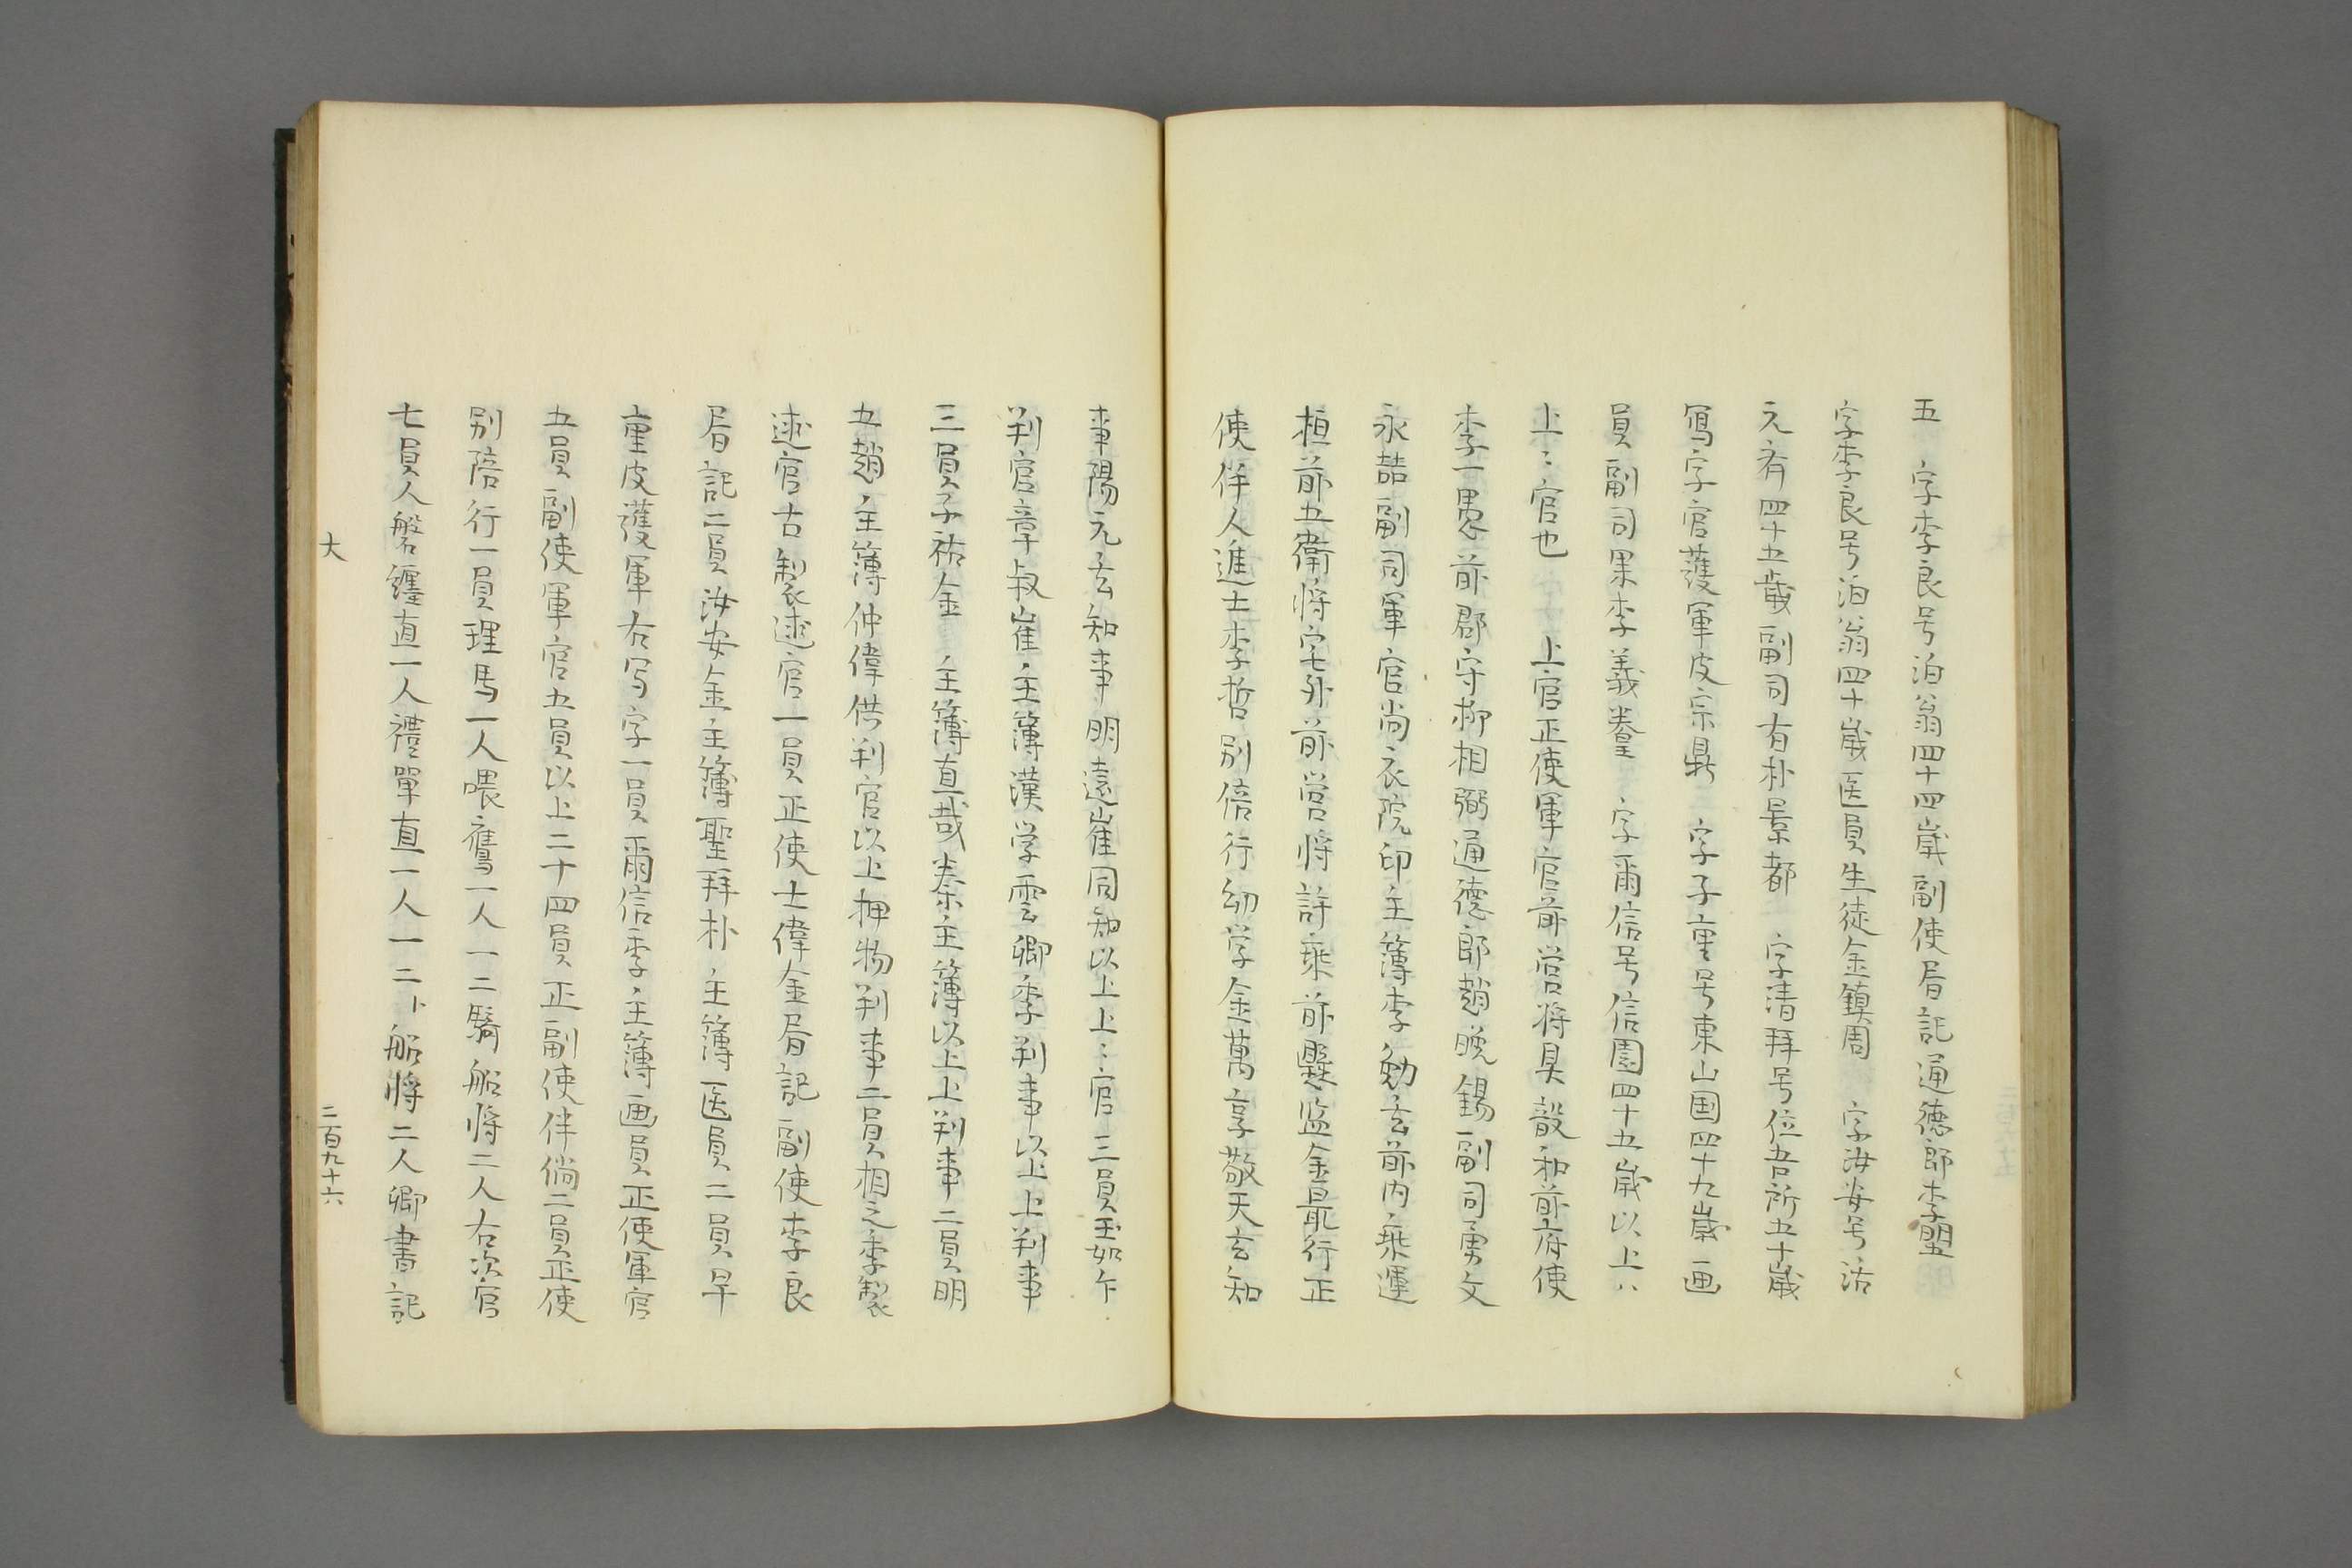 五　字李良号泊翁四十四歳副使居記通德郎李塱
字李良号泊翁四十歳医員生徒金鎮周　字汝安号活
元斉四十五歳副司有朴景都　字清拜号位吾所五十歳
写字官護軍皮宗鼎　字子重号東山国四十九歳画
員副司果李義養　字爾信号信園四十五歳以上八
上々官也　上官正使軍官前営将具毅和前府使
李一愚前郡守柳相弼通德郎趙晩錫副司勇文
永喆副司軍官尚衣院印主簿李勉玄前内乗運
桓前五衛将字七外前営将許乗前縣監金最行正
使伴人進士李哲別倍行幼学金萬享敬天玄知
事陽元玄知事明遠崔同知以上上々官三員玉如卞
判官章叔崔主簿漢学雲卿李判事以上上判事
三員子祐金　主簿直哉秦主簿以上上判事二員明
五趙主簿仲偉供判官以上押物判事二員相之李製
述官古製述官一員正使士偉金居記副使李良
居記二員汝安金主簿聖拜朴主簿医員二員早
重皮護軍右写字一員爾信李主簿画員正使軍官
五員副使軍官五員以上二十四員正副使伴倘二員正使
別陪行一員理馬一人喂鷹一人一二騎船将二人右次官
七員人盤纏直一人禮單直一人一二卜船将二人卿書記
大
二百九十六